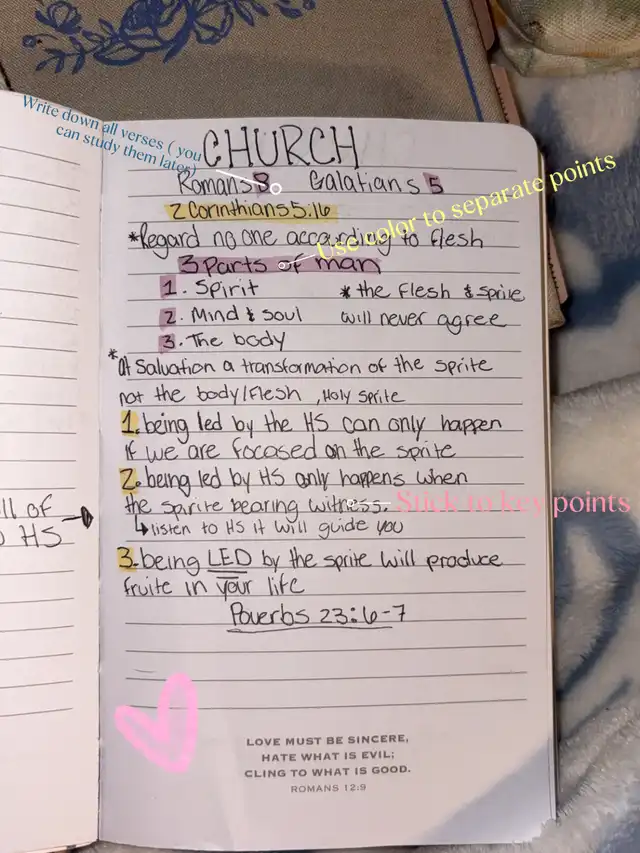 Write down all verses ( you
can study them later)
CHURCH
Romans 8 Galatians 5
2 Corinthians 5:16
Use color to separate points
*Regard no one according to flesh
3 Parts of man
1. Spirit * the Flesh & sprite
2. Mind & Soul will never agree
3. The body
*at Salvation a transformation of the sprite
not the body/Flesh , Holy Sprite
1. being led by the HS can only happen
if we are focased on the sprite
2. being led by HS only happens when
the spirite bearing witness.
Stick to key points
↳ listen to HS it will guide you
ll of
HS
3. being LED by the sprite will produce
fruite in your life
Poverbs 23:6-7
LOVE MUST BE SINCERE,
HATE WHAT IS EVIL;
CLING TO WHAT IS GOOD.
ROMANS 12:9